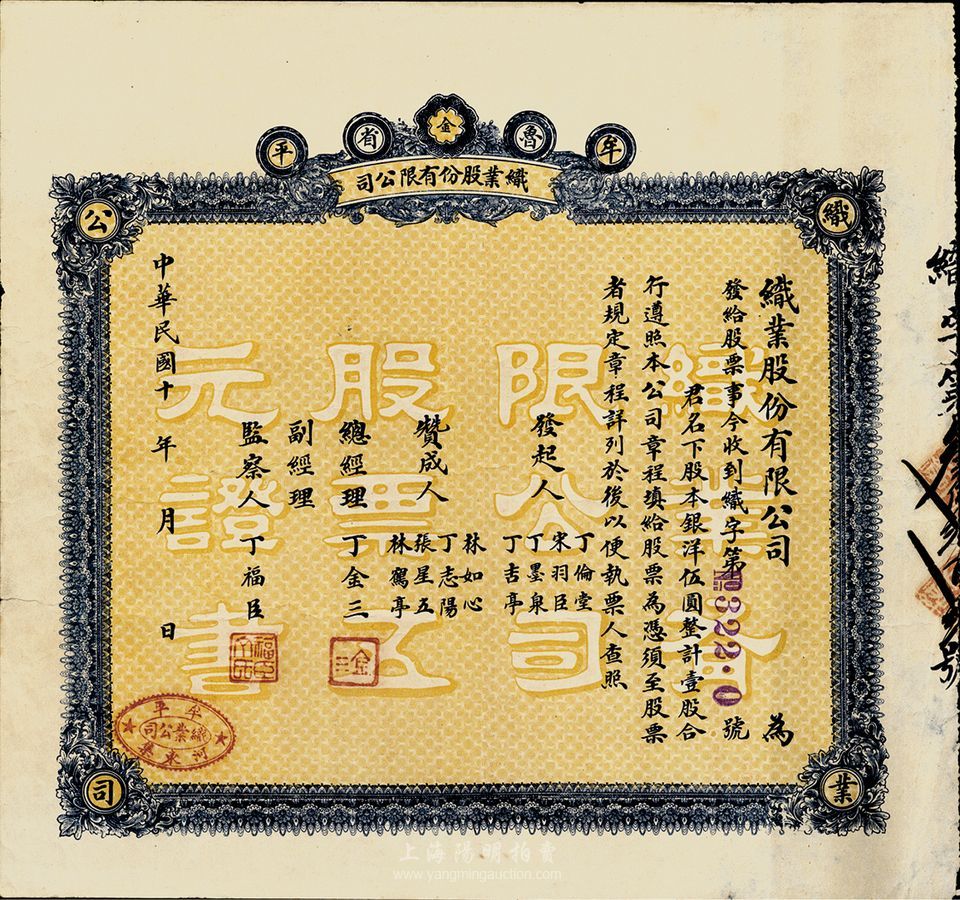 牟魯金省平
織業股份有限公司
織
業
公
司
織業股份有限公司 為
發給股票事今收到織字第№322·0號
君名下股本銀洋伍圓整計壹股合
行遵照本公司章程填給股票為憑須至股票
者規定章程詳列於後以便執票人查照
發起人 丁倫堂 宋羽臣 丁墨泉 丁吉亭
贊成人 林如心 丁志陽 張星五 林鶴亭
總經理 丁金三
副經理
監察人 丁福臣
中華民國十 年 月 日
織業股份
限公司
股票五
元證書
金三
牟平
織業公司
河東
號
上海陽明拍賣
www.yangmingauction.com